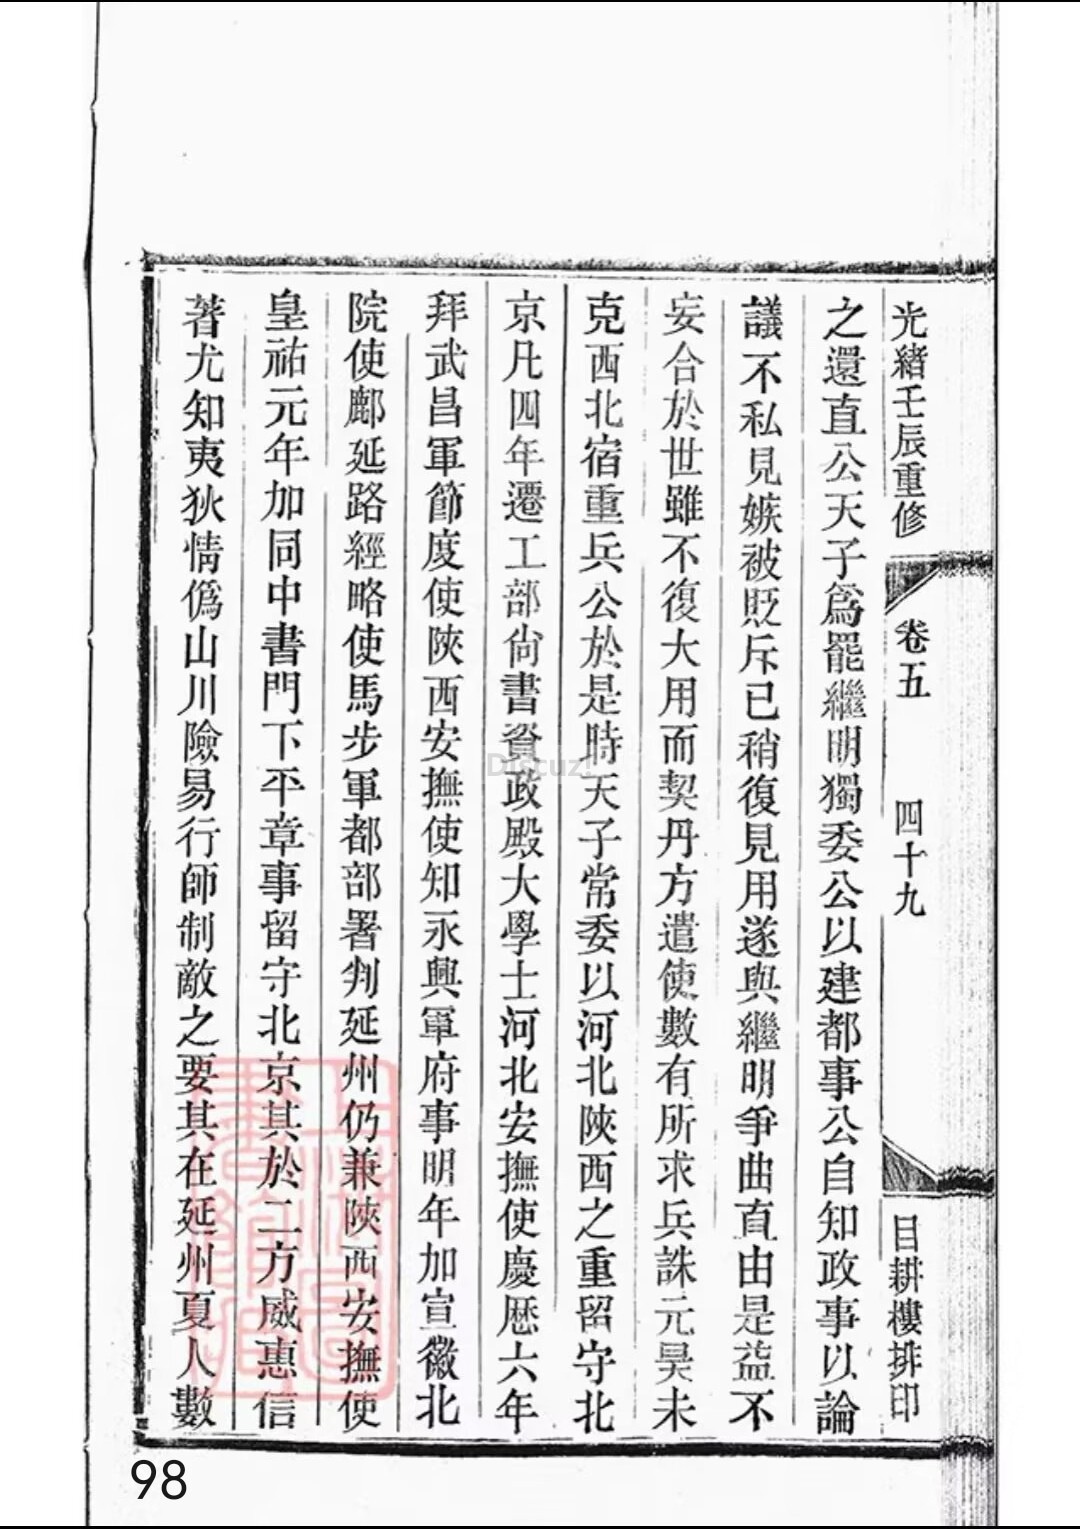 光緒壬辰重修 卷五 四十九 目耕樓排印
之還直公天子爲罷繼明獨委公以建都事公自知政事以論
議不私見嫉被貶斥已稍復見用遂與繼明爭曲直由是益不
妄合於世雖不復大用而契丹方遣使數有所求兵誅元昊未
克西北宿重兵公於是時天子常委以河北陝西之重留守北
京凡四年遷工部尚書資政殿大學士河北安撫使慶歷六年
拜武昌軍節度使陝西安撫使知永興軍府事明年加宣徽北
院使鄜延路經略使馬步軍都部署判延州仍兼陝西安撫使
皇祐元年加同中書門下平章事留守北京其於二方威惠信
著尤知夷狄情僞山川險易行師制敵之要其在延州夏人數
Discuz!
98